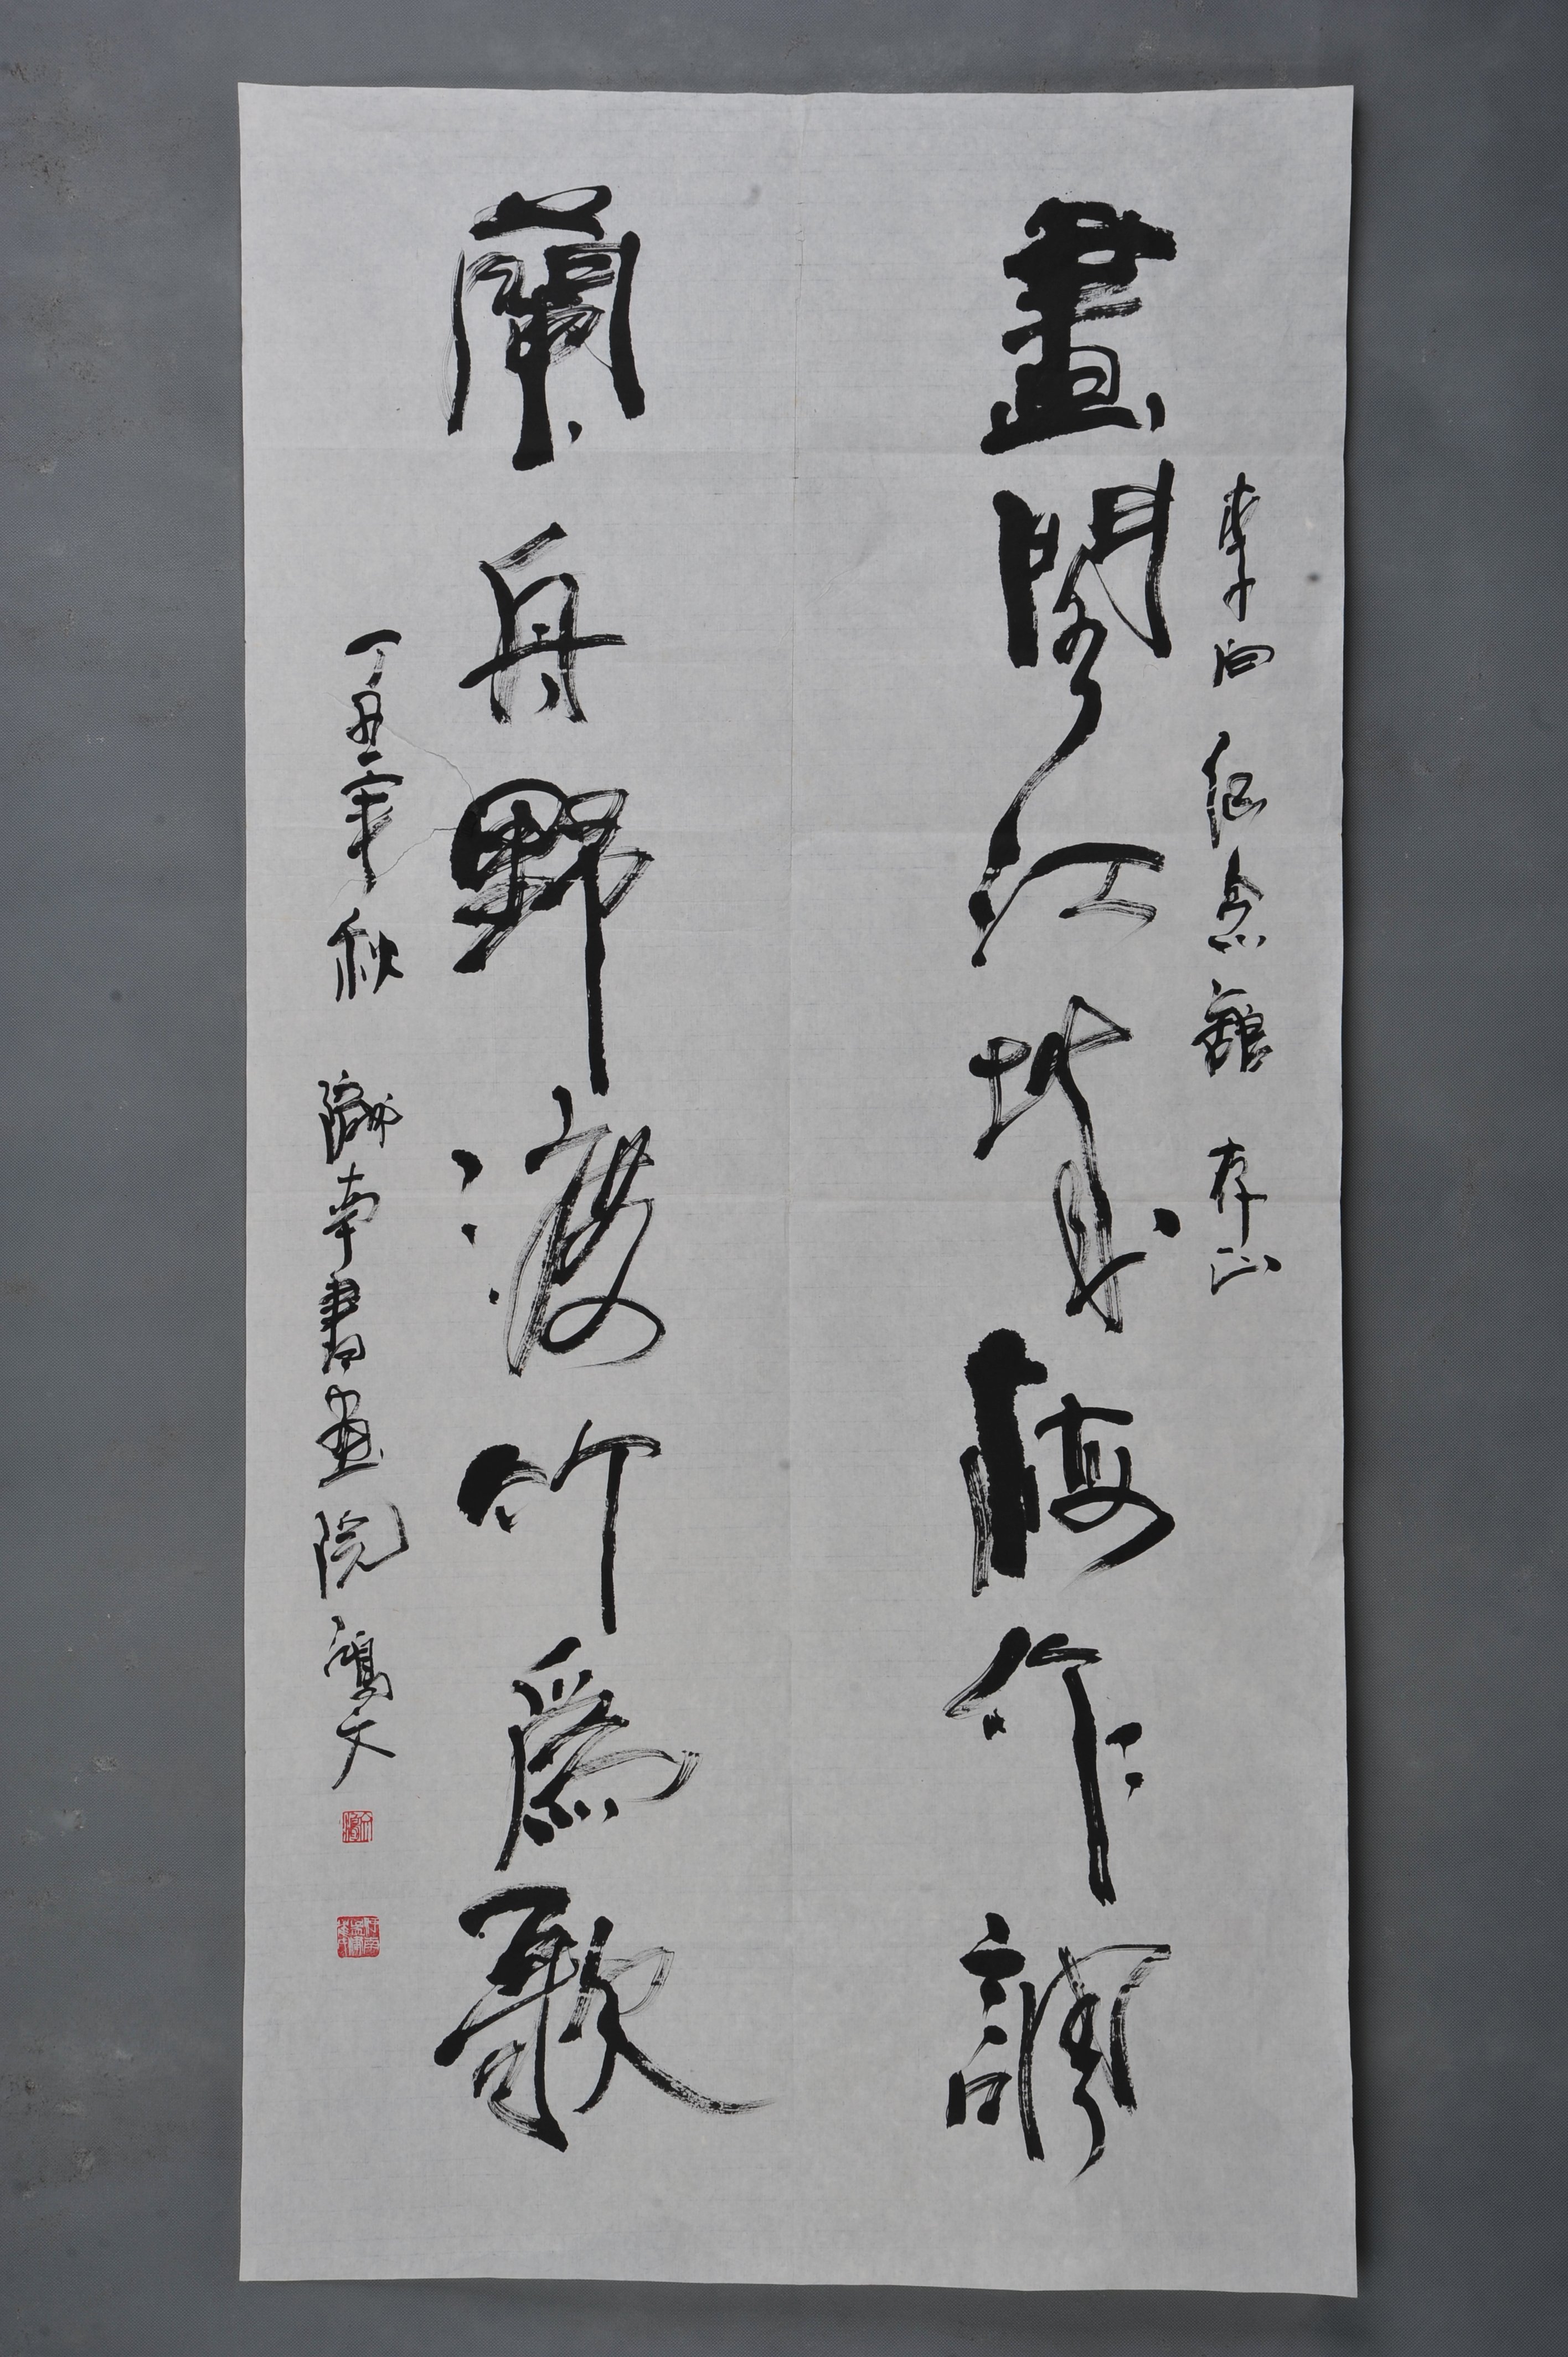 李白纪念館 存正
畫閣江城梅作調
蘭舟野渡竹爲歌
丁丑年秋 隴南書畫院 鴻文